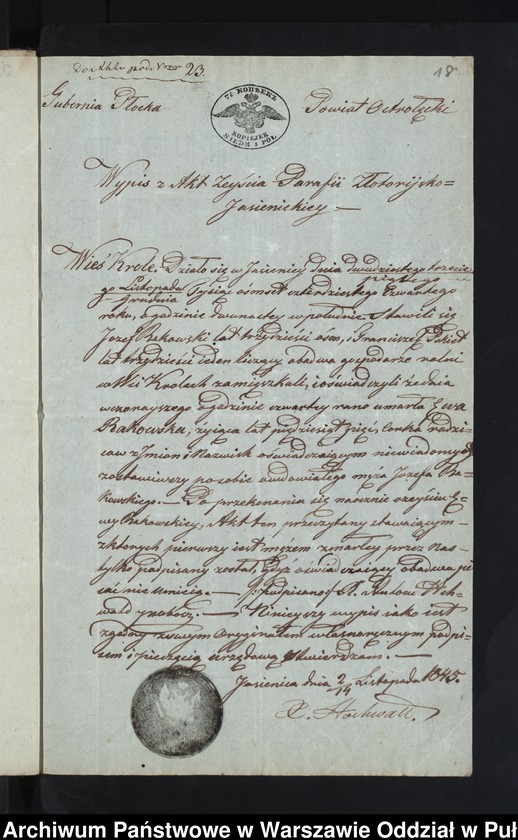 Do Aktu pod Nrem 23.
18
Gubernia Płocka
7½ КОПѢЕКЪ
KOPIEJEK
SIEDM I PÓŁ
Powiat Ostrołęcki
Wypis z Akt Zeyścia Parafii Złotoryjsko=
Jasienickiey —
Wieś Króle. Działo się w Jasienicy dnia dwudziestego trzecie-
go Listopada / piątego
Grudnia Tysiąc ośmset czterdziestego Czwartego
roku, o godzinie dwunastey w południe Stawili się
Jozef Rakowski lat trzydzieści ośm, i Franciszek
lat trzydzieści ieden liczący obadwa gospodarze rolni
w Wsi Krolach zamieszkali, i oświadczyli że dnia
wczorayszego o godzinie czwartey rano umarła Ewa
Rakowska, żyiąca lat pięćdziesiąt córka rodzi-
ców z Jmion i Nazwisk oświadczaiącym niewiadomych
zostawiwszy po sobie owdowiałego męża Jozefa Ra-
kowskiego. — Po przekonaniu się naocznie o zeyściu E-
wy Rakowskiey, Akt ten przeczytany stawaiącym
z których pierwszy iest mężem zmarłey przez Nas
tylko podpisany został, gdyż oświadczaiący obadwa pi
sać nie umieią. — /podpisano/ X. Antoni Hoch-
wald — Ninieyszy wypis iako iest
zgodny z swym Oryginałem własnoręcznym podpi-
sem i pieczęcią urzędową stwierdzam. —
Jasienica dnia 2/14 Listopada 1845.
X. Hochwald.
Archiwum Państwowe w Warszawie Oddział w Puł